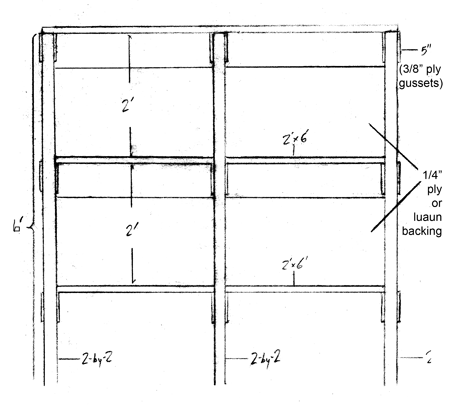 5"
(3/8" ply
gussets)
2'
2'x6'
1/4"
ply
or
luaun
backing
6'
2'
2'x6'
2-by-2
2-by-2
2